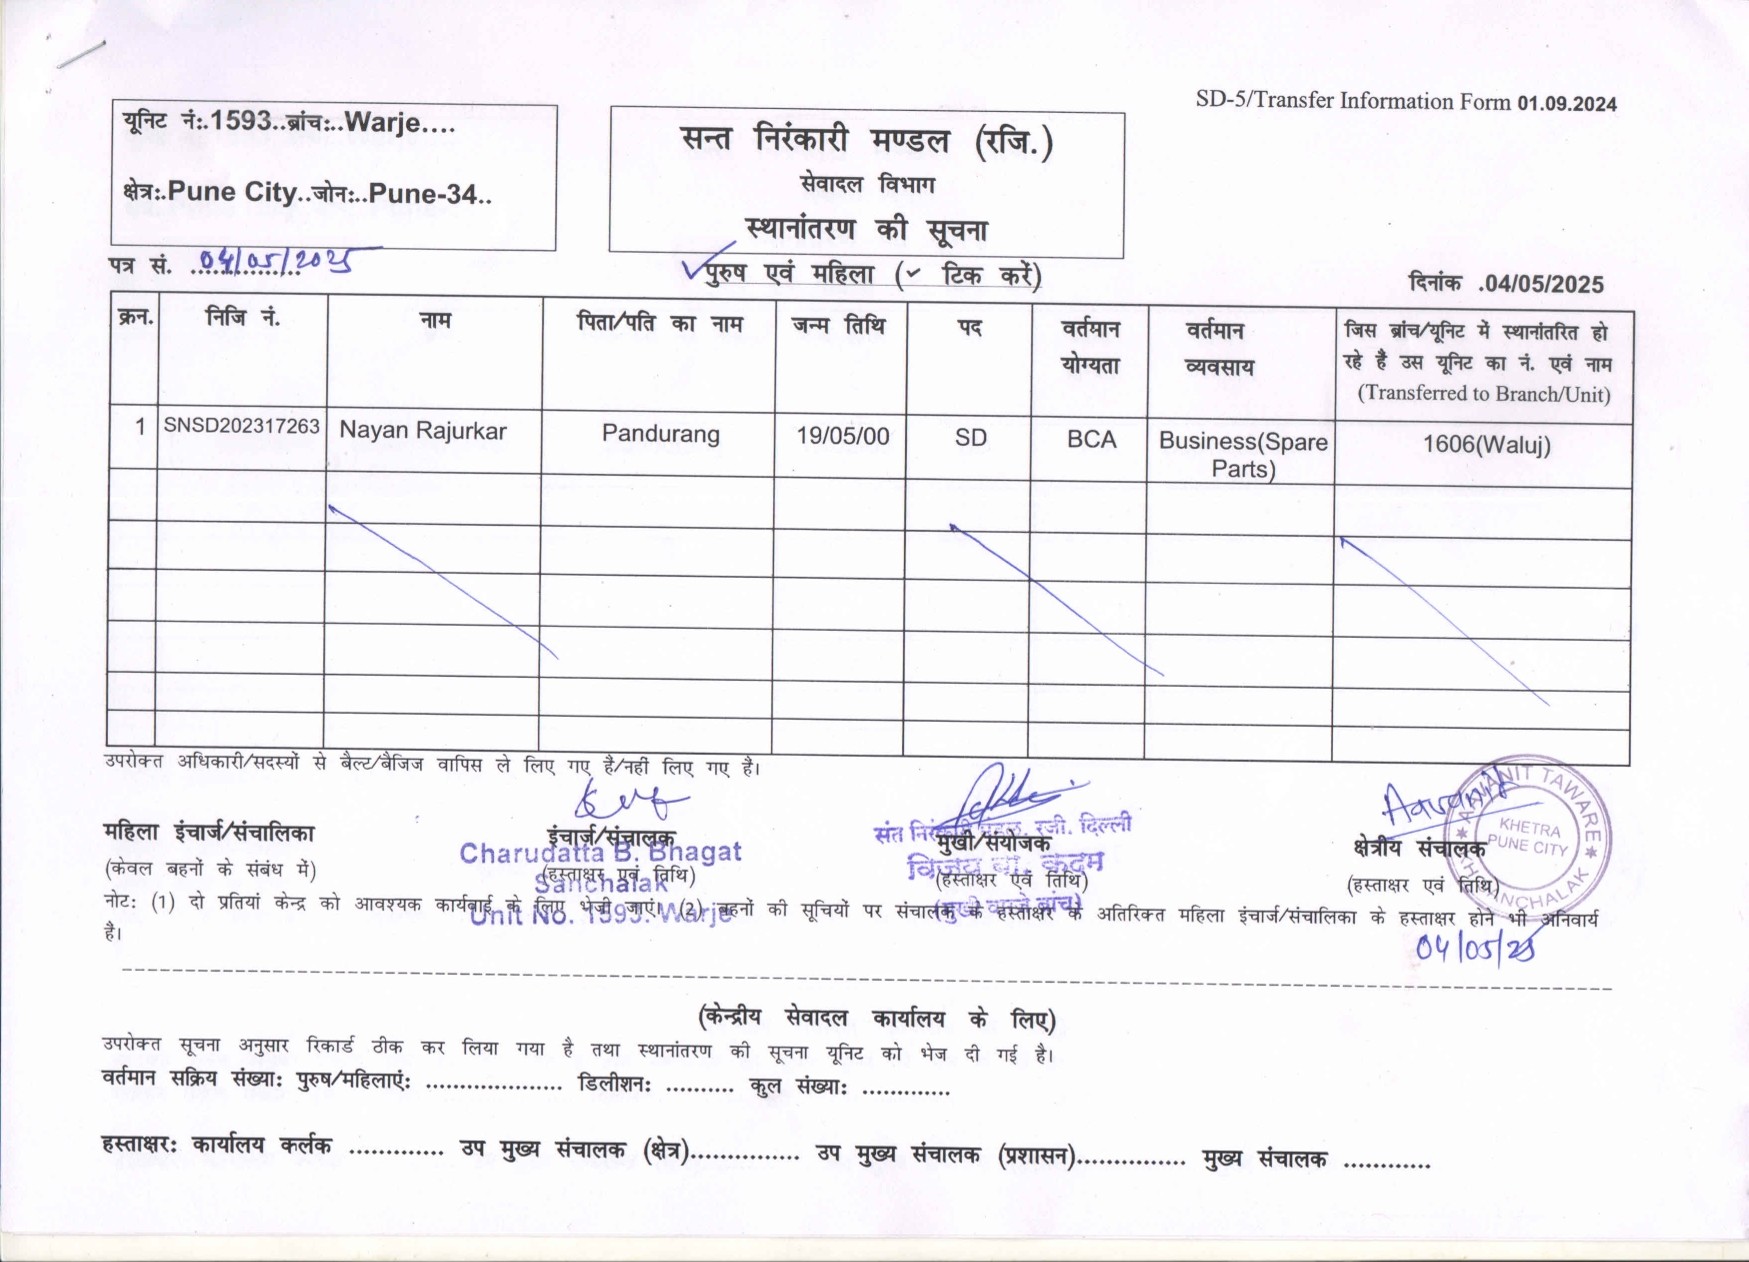 SD-5/Transfer Information Form 01.09.2024
यूनिट नं:.1593..ब्रांच:..Warje....
क्षेत्र:.Pune City..जोन:..Pune-34..
सन्त निरंकारी मण्डल (रजि.)
सेवादल विभाग
स्थानांतरण की सूचना
पत्र सं. 04/05/2025
✓पुरुष एवं महिला (✓ टिक करें)
दिनांक .04/05/2025
क्रन. निजि नं. नाम पिता/पति का नाम जन्म तिथि पद वर्तमान योग्यता वर्तमान व्यवसाय जिस ब्रांच/यूनिट में स्थानांतरित हो रहे है उस यूनिट का नं. एवं नाम (Transferred to Branch/Unit)
1 SNSD202317263 Nayan Rajurkar Pandurang 19/05/00 SD BCA Business(Spare Parts) 1606(Waluj)
उपरोक्त अधिकारी/सदस्यों से बैल्ट/बैजिज वापिस ले लिए गए है/नहीं लिए गए है।
महिला इंचार्ज/संचालिका
(केवल बहनों के संबंध में)
इंचार्ज/संचालक
Charudatta B. Bhagat
(हस्ताक्षर एवं तिथि)
Sanchalak
Unit No. 1593. Warje
संत निरंकारी मंडल. रजी. दिल्ली
मुखी/संयोजक
(हस्ताक्षर एवं तिथि)
Aavanit
क्षेत्रीय संचालक
(हस्ताक्षर एवं तिथि)
AVANIT TAWARE
KHETRA
PUNE CITY
SANCHALAK
04/05/25
नोट: (1) दो प्रतियां केन्द्र को आवश्यक कार्यवाई के लिए भेजी जाएं। (2) बहनों की सूचियों पर संचालक के हस्ताक्षर के अतिरिक्त महिला इंचार्ज/संचालिका के हस्ताक्षर होने भी अनिवार्य
है।
(केन्द्रीय सेवादल कार्यालय के लिए)
उपरोक्त सूचना अनुसार रिकार्ड ठीक कर लिया गया है तथा स्थानांतरण की सूचना यूनिट को भेज दी गई है।
वर्तमान सक्रिय संख्या: पुरुष/महिलाएं: .................... डिलीशन: .......... कुल संख्या: .............
हस्ताक्षर: कार्यालय कर्लक ............. उप मुख्य संचालक (क्षेत्र)............... उप मुख्य संचालक (प्रशासन)............... मुख्य संचालक ............